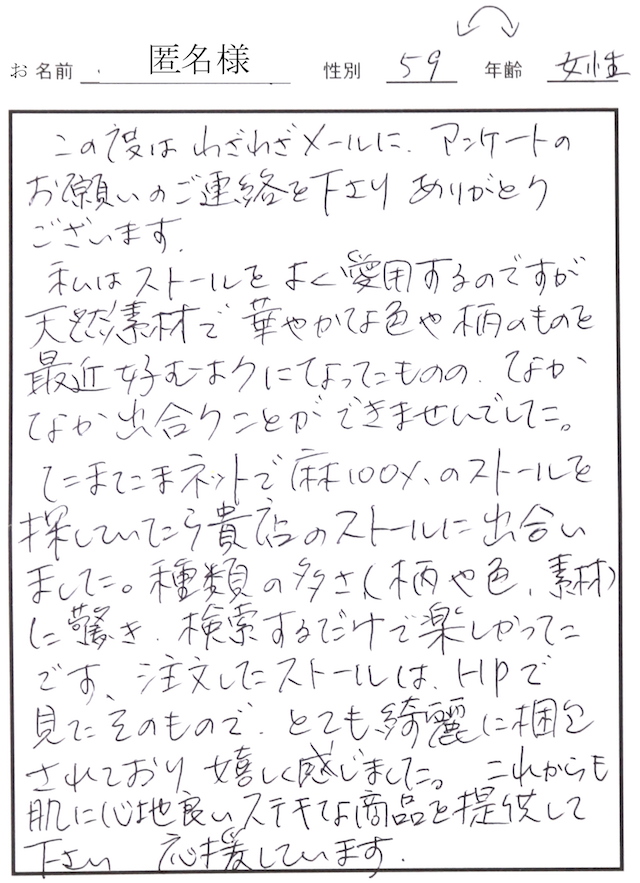 お名前 匿名様 性別 59 年齢 女性
この度は わざわざメールに、アンケートの
お願いのご連絡を下さり ありがとう
ございます。
私はストールをよく愛用するのですが
天然素材で華やかな色や柄のものを
最近好むようになったものの、なか
なか出合うことができませんでした。
たまたまネットで麻100%のストールを
探していたら貴店のストールに出合い
ました。種類の多さ(柄や色、素材)
に驚き、検索するだけで楽しかった
です、注文したストールは、HPで
見たそのもので、とても綺麗に梱包
されており 嬉しく感じました。 これからも
肌に心地良いステキな商品を提供して
下さい 応援しています。